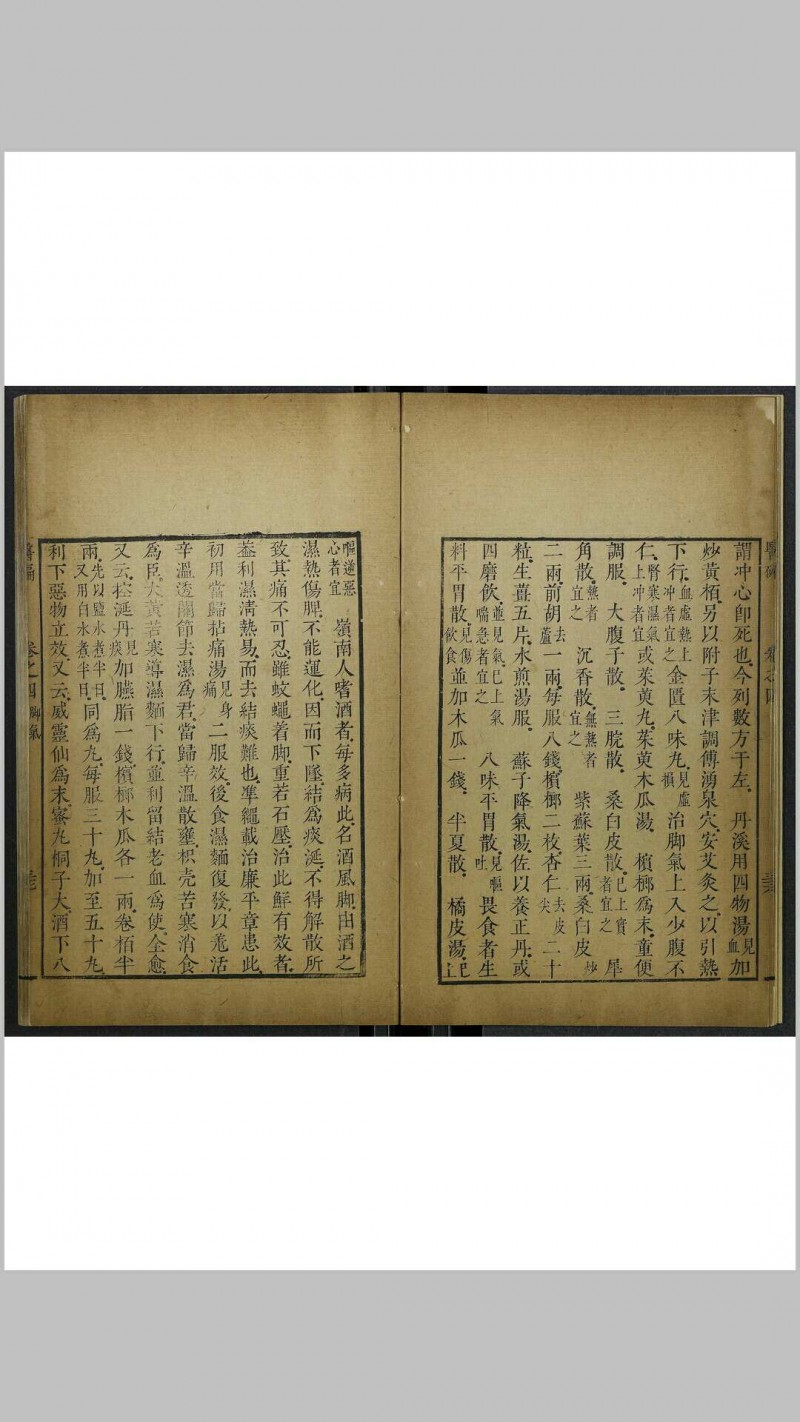 謂冲心即死也今列數方于左　丹溪用四物湯見血加
炒黃栢另以附子末津調傅湧泉穴安艾灸之以引熱
下行血虛熱上冲者宜之金匱八味丸見虛損治脚氣上入少腹不
仁腎寒濕氣上冲者宜或茱萸丸茱萸木瓜湯　檳榔爲末童便
調服　大腹子散　三脘散　桑白皮散已上實者宜之　犀
角散熱者宜之　沉香散無熱者宜之　紫蘇葉三兩桑白皮炒
二兩前胡去蘆一兩每服八錢檳榔二枚杏仁去皮尖二十
粒生薑五片水煎湯服　蘇子降氣湯佐以養正丹或
四磨飲並見氣已上氣喘急者宜之　八味平胃散見嘔吐畏食者生
料平胃散見傷飲食並加木瓜一錢　半夏散　橘皮湯已
嘔逆惡心者宜　嶺南人嗜酒者每多病此名酒風脚由酒之
濕熱傷脾不能運化因而下墜結爲痰涎不得解散所
致其痛不可忍雖蚊蠅着脚重若石壓治此鮮有效者
葢利濕淸熱易而去結痰難也準繩載治廉平章患此
初用當歸拈痛湯見身痛二服效後食濕麵復發以羗活
辛溫透關節去濕爲君當歸辛溫散壅枳壳苦寒消食
爲臣大黃苦寒導濕麵下行並利留結老血爲使全愈
又云控涎丹見痰加臙脂一錢檳榔木瓜各一兩卷栢半
兩先以鹽水煮半日又用白水煮半日同爲丸每服三十丸加至五十丸
利下惡物立效又云威靈仙爲末蜜丸桐子大酒下八
卷之四　脚氣